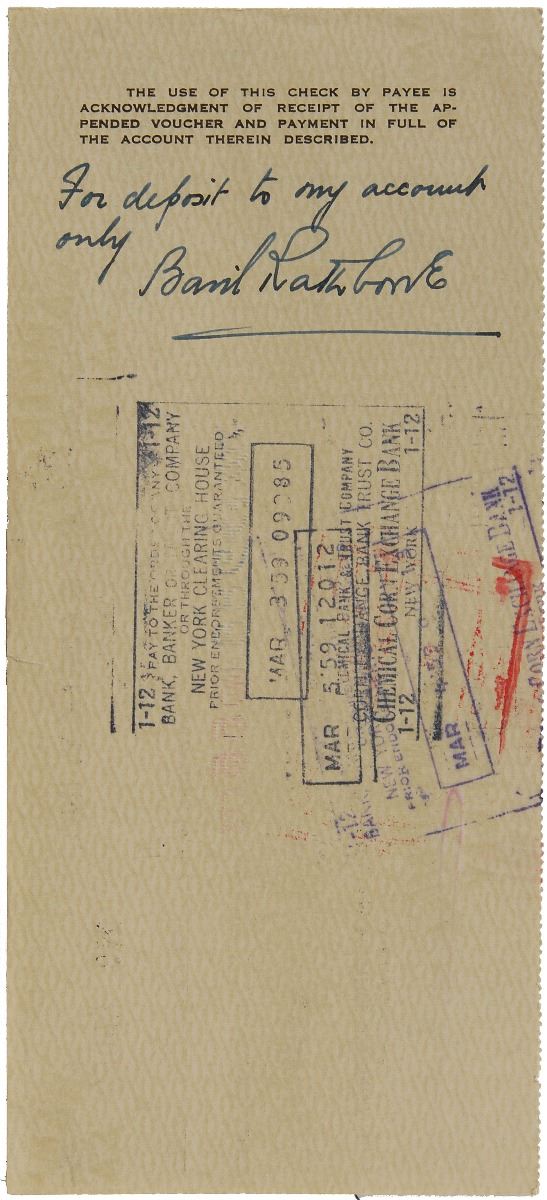 THE USE OF THIS CHECK BY PAYEE IS
ACKNOWLEDGMENT OF RECEIPT OF THE AP-
PENDED VOUCHER AND PAYMENT IN FULL OF
THE ACCOUNT THEREIN DESCRIBED.
For deposit to my account
only
Basil Rathbone
1-12 PAY TO THE ORDER OF ANY 1-12
BANK, BANKER OR TRUST COMPANY
OR THROUGH THE
NEW YORK CLEARING HOUSE
PRIOR ENDORSEMENTS GUARANTEED
MAR 3'59 09085
MAR 5'59 12012
CHEMICAL BANK & TRUST COMPANY
CORN EXCHANGE BANK TRUST CO.
CHEMICAL CORN EXCHANGE BANK
1-12 NEW YORK 1-12
MAR
NEW YORK
PRIOR ENDO
BANK
CORN EXCHANGE BANK
1-12